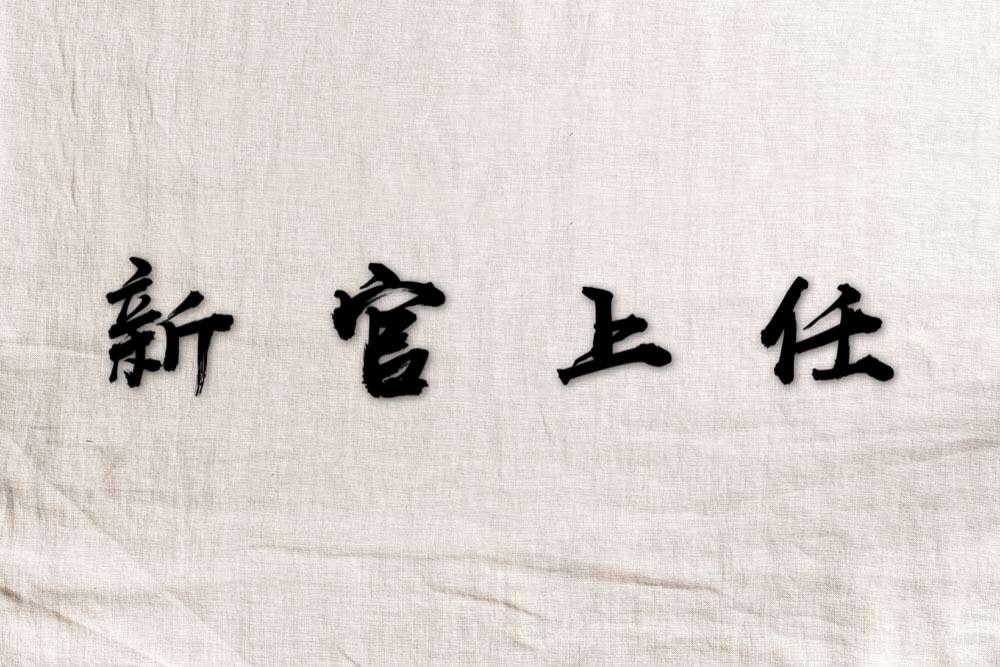 新官上任